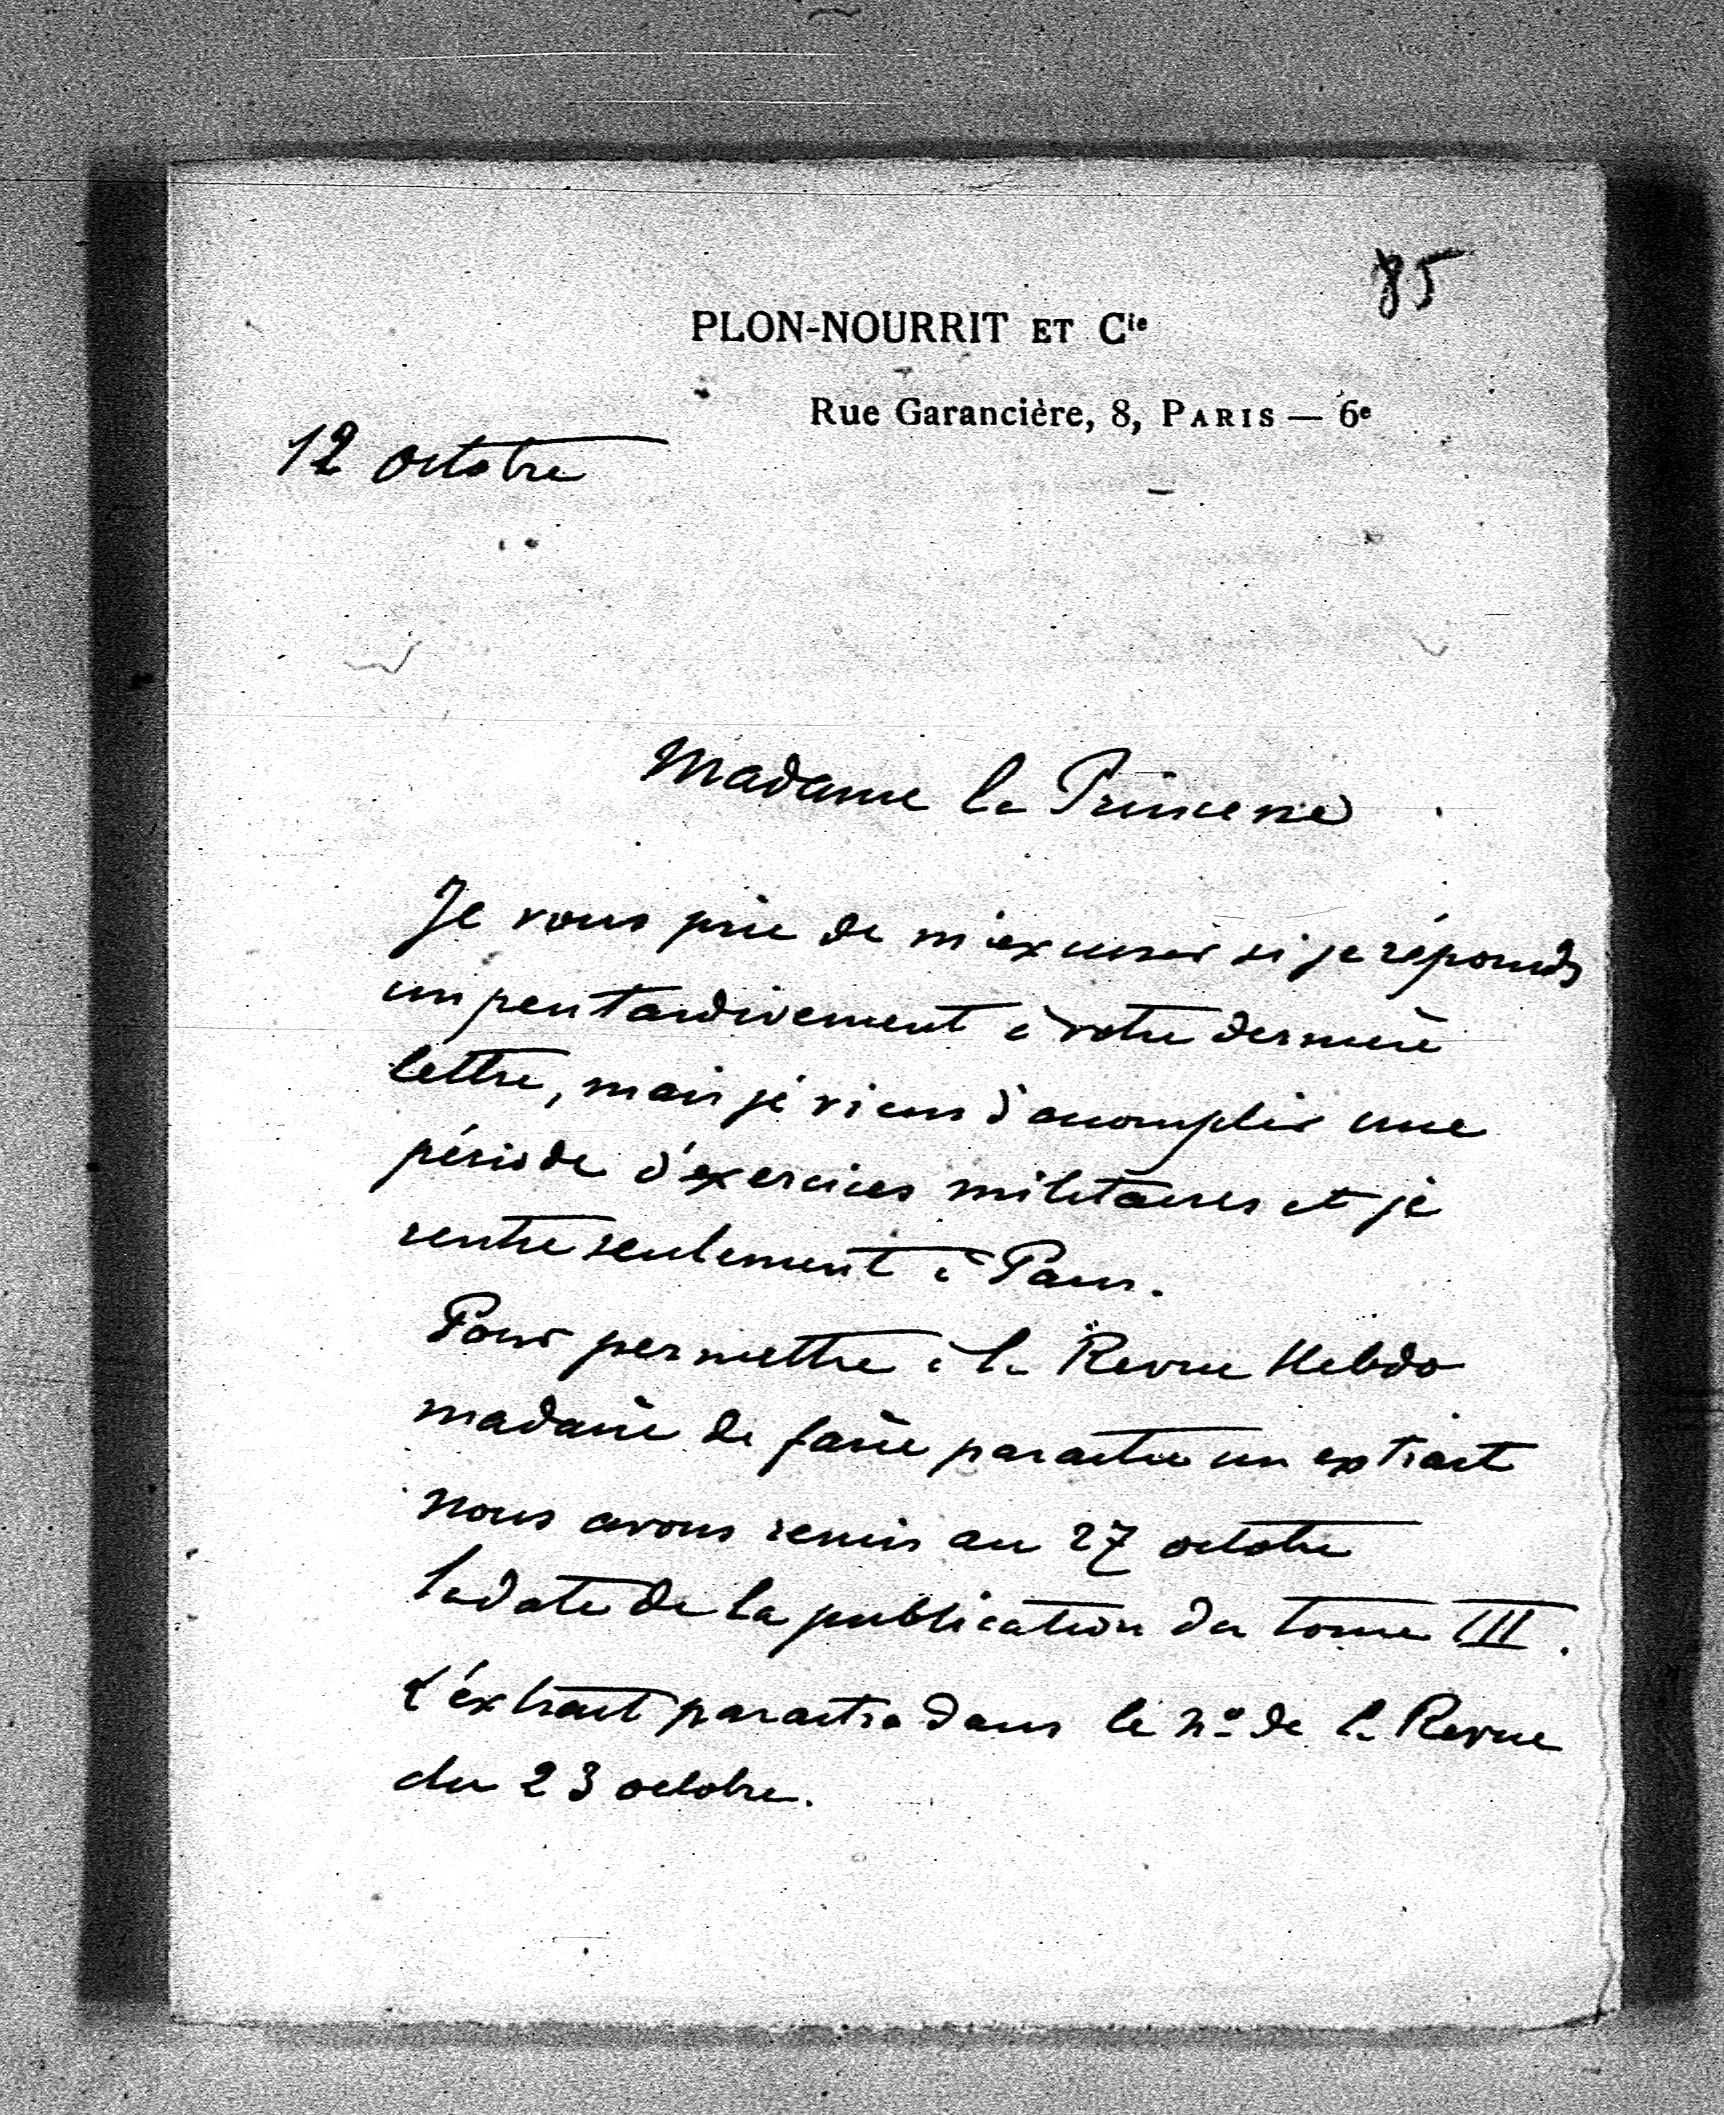 85
PLON-NOURRIT ET Cie
Rue Garancière, 8, PARIS — 6e
12 octobre
Madame la Princesse
Je vous prie de m'excuser si je réponds
un peu tardivement à votre dernière
lettre, mais je viens d'accomplir une
période d'exercices militaires et je
rentre seulement à Paris.
Pour permettre à la Revue Hebdo
madaire de faire paraitre un extrait
nous avons remis au 27 octobre
la date de la publication du tome III.
L'extrait paraitra dans le nº de la Revue
du 23 octobre.